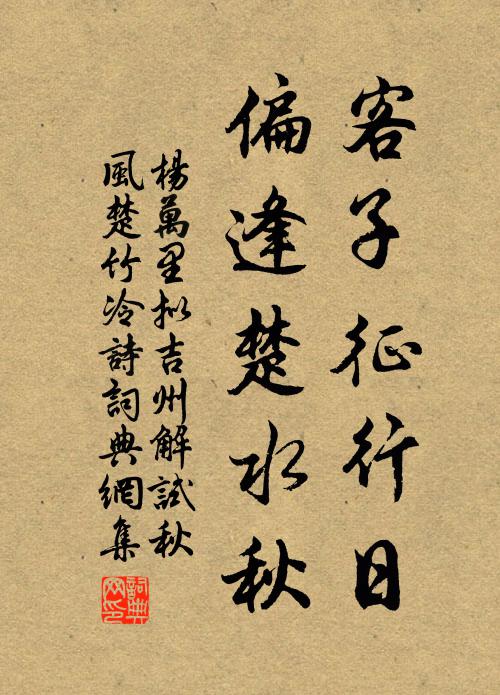 客子征行日
偏逢楚水秋
楊萬里拟吉州解試秋
風楚竹冷詩詞典網集
詞典
网印